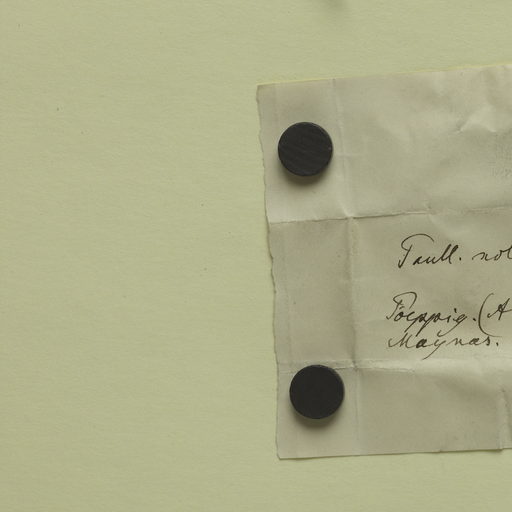 Paull. nob
Pöeppig. (A
Maynas.